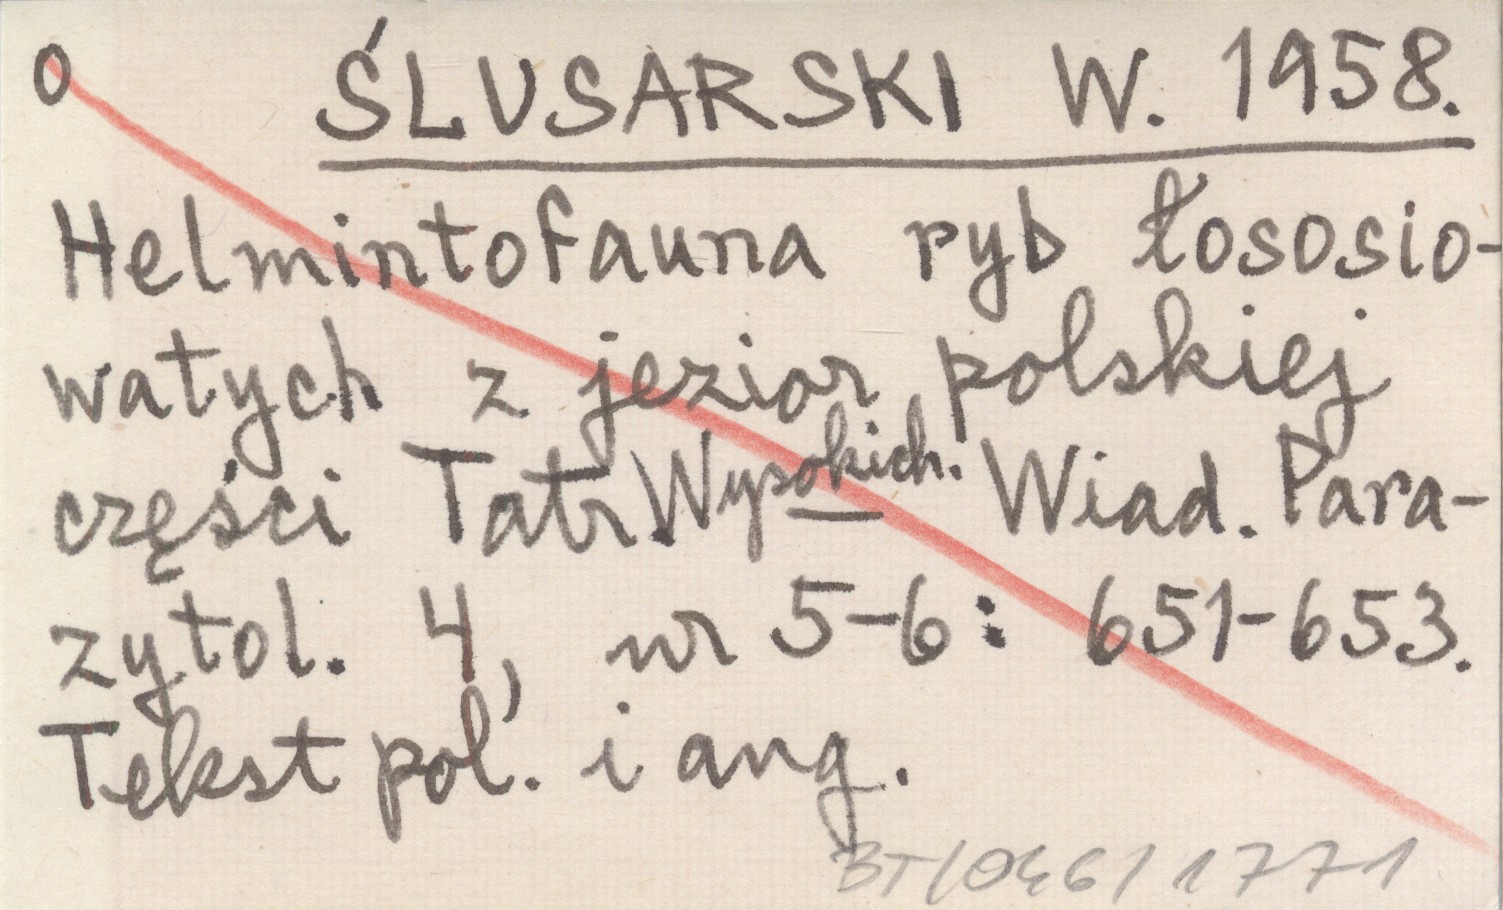 O ŚLUSARSKI W. 1958.
Helmintofauna ryb łososio-
watych z jezior polskiej
części Tatr. Wysokich. Wiad. Para-
zytol. 4, nr 5-6: 651-653.
Tekst pol. i ang.
BT/046/1771